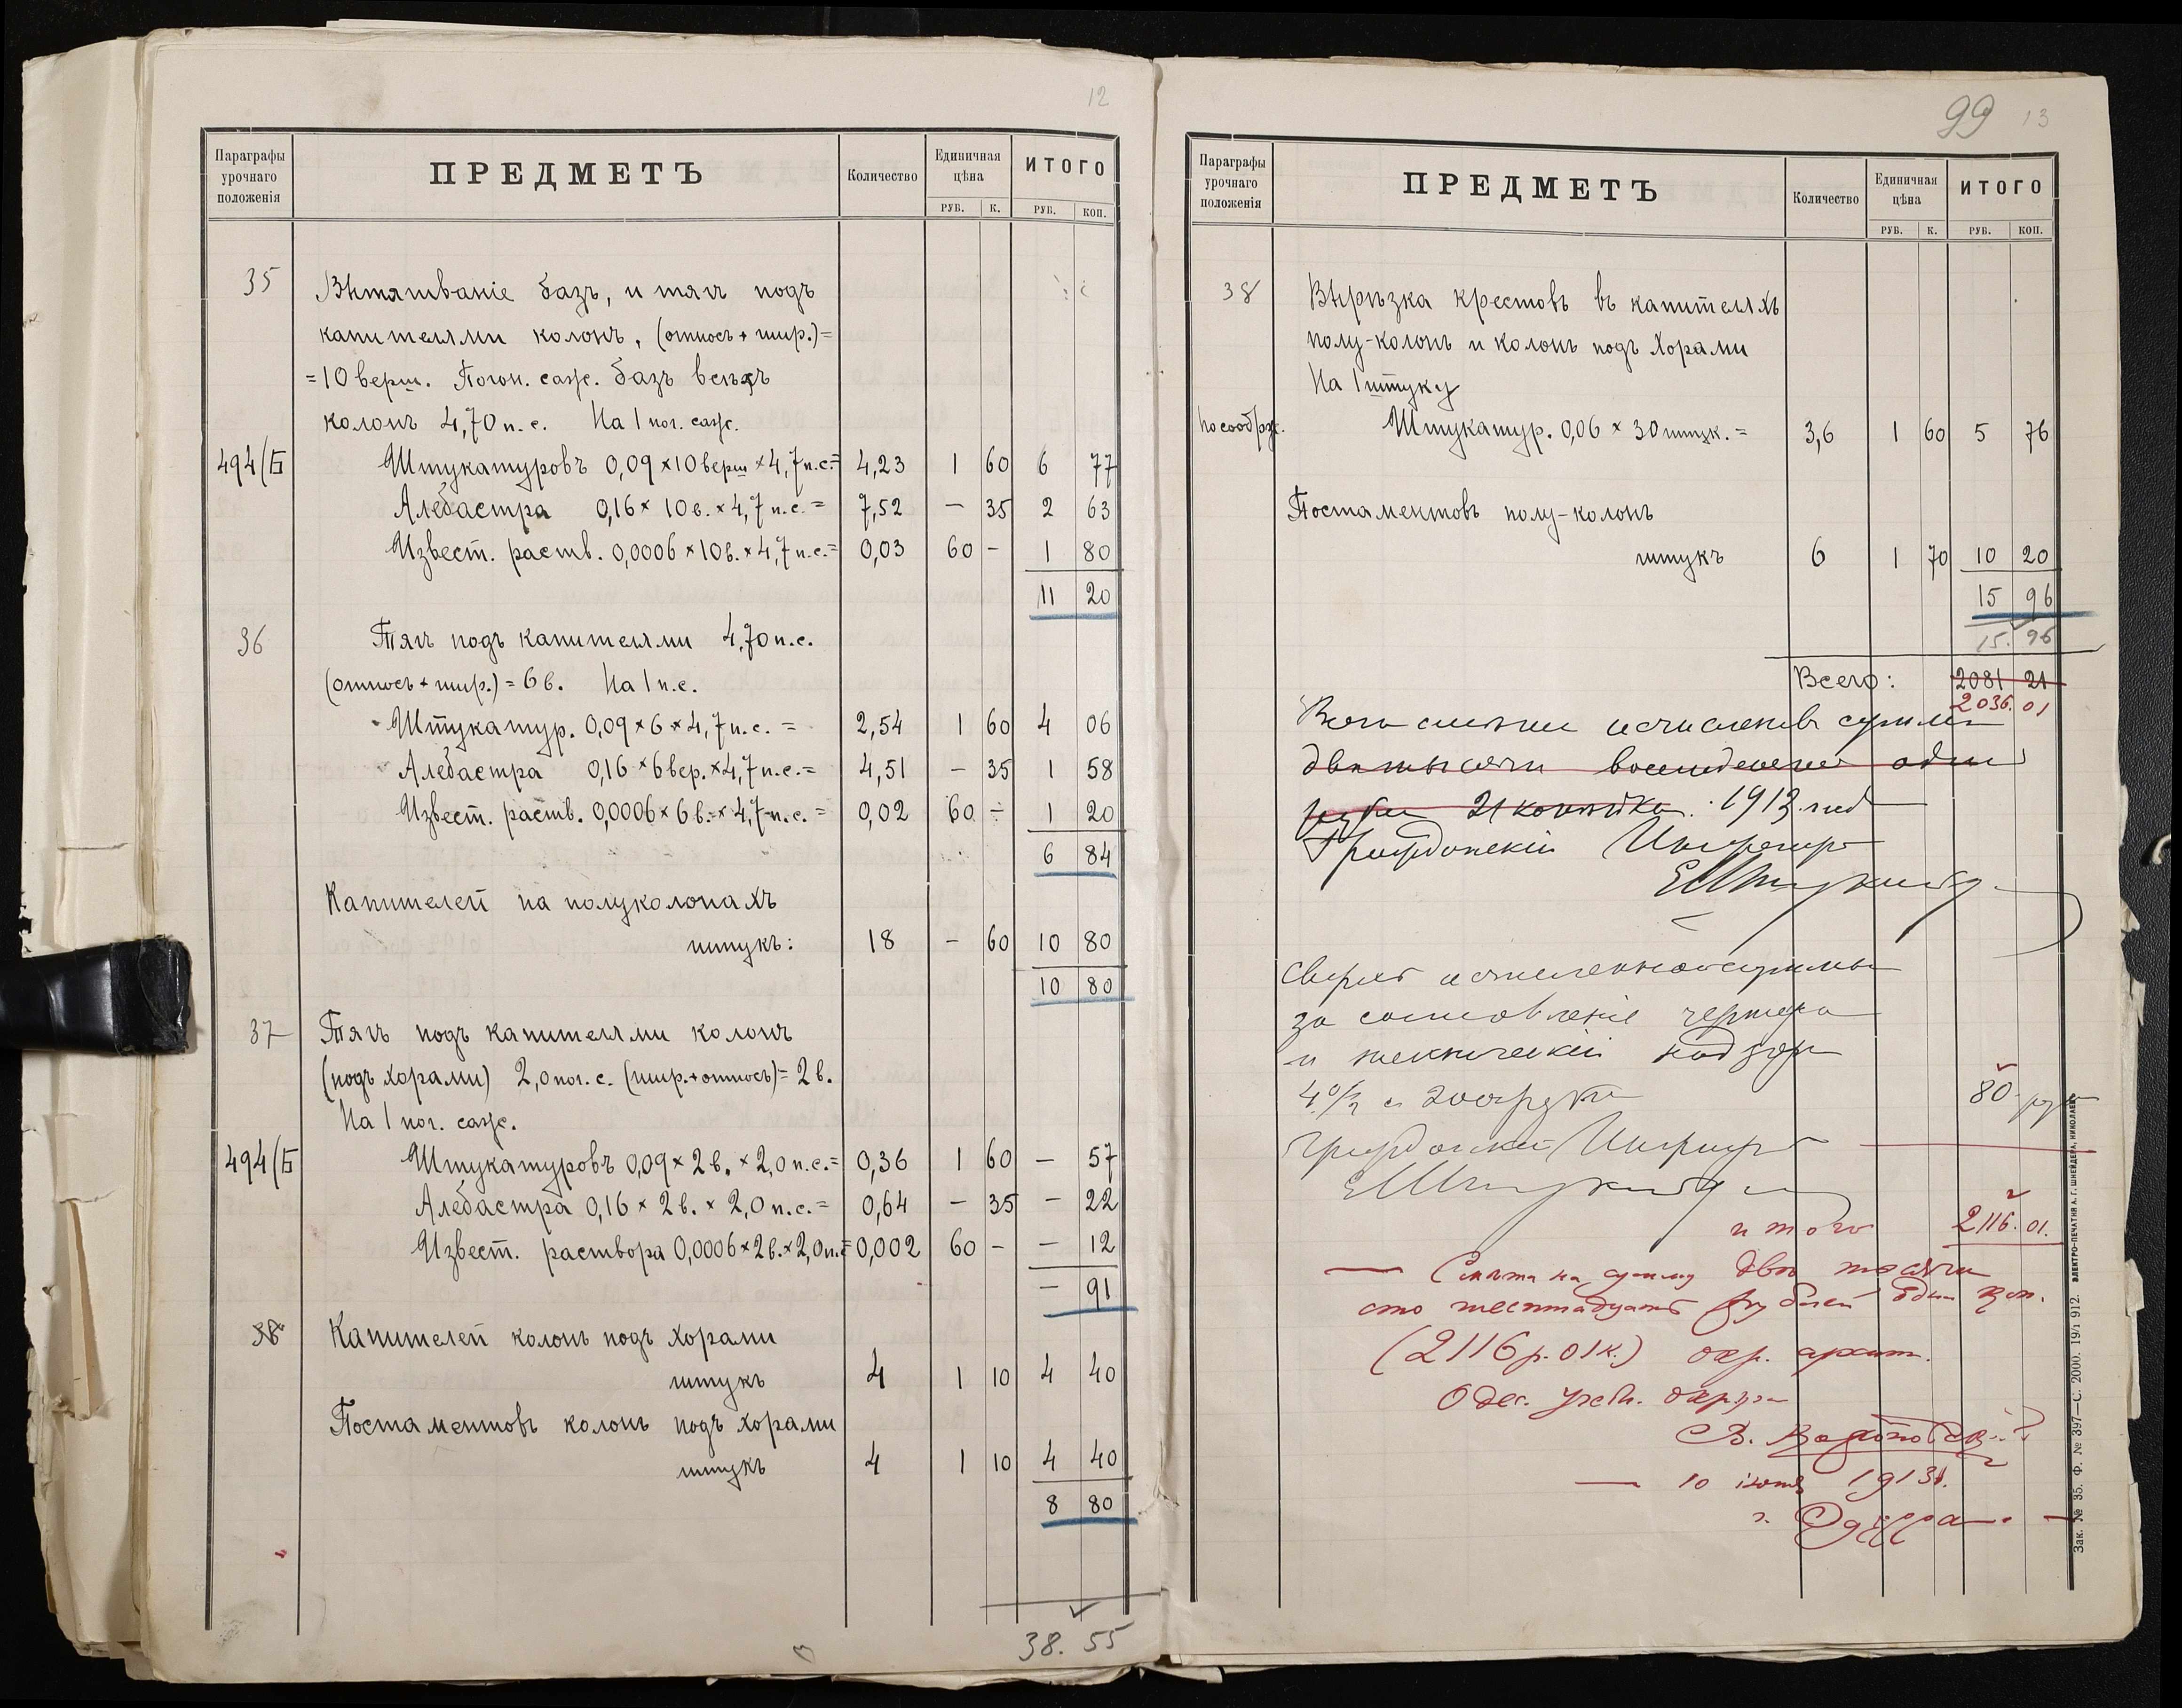 12
Параграфы урочнаго положенія
ПРЕДМЕТЪ
Количество
Единичная цѣна
ИТОГО
РУБ. К. РУБ. КОП.
35 Вытягиваніе базъ, и тягъ подъ
капителями колонъ, (относъ + шир.) =
= 10 верш. Погон. саж. базъ всѣхъ
колонъ 4,70 п. с. На 1 пог. саж.
494/Б Штукатуровъ 0,09 × 10 верш × 4,7 п.с. = 4,23 1 60 6 77
Алебастра 0,16 × 10 в. × 4,7 п.с. = 7,52 — 35 2 63
Извест. раств. 0,0006 × 10 в. × 4,7 п.с. = 0,03 60 - 1 80
11 20
36 Тягъ подъ капителями 4,70 п.с.
(относъ + шир.) = 6 в. На 1 п.с.
Штукатур. 0,09 × 6 × 4,7 п.с. = 2,54 1 60 4 06
Алебастра 0,16 × 6 вер. × 4,7 п.с. = 4,51 — 35 1 58
Извест. раств. 0,0006 × 6 в. × 4,7 п.с. = 0,02 60 - 1 20
6 84
Капителей на полуколонахъ
штукъ: 18 — 60 10 80
10 80
37 Тягъ подъ капителями колонъ
(подъ хорами) 2,0 пог. с. (шир. + относъ) = 2 в.
На 1 пог. саж.
494/Б Штукатуровъ 0,09 × 2 в. × 2,0 п.с. = 0,36 1 60 — 57
Алебастра 0,16 × 2 в. × 2,0 п.с. = 0,64 — 35 — 22
Извест. раствора 0,0006 × 2 в. × 2,0 п.с = 0,002 60 - — 12
— 91
38 Капителей колонъ подъ хорами
штукъ 4 1 10 4 40
Постаментовъ колонъ подъ хорами
штукъ 4 1 10 4 40
8 80
38. 55
99 13
Параграфы урочнаго положенія
ПРЕДМЕТЪ
Количество
Единичная цѣна
ИТОГО
РУБ. К. РУБ. КОП.
38 Вырѣзка крестовъ въ капителяхъ
полу-колонъ и колонъ подъ хорами
На 1 штуку
По сообрж. Штукатур. 0,06 × 30 штук. = 3,6 1 60 5 76
Постаментовъ полу-колонъ
штукъ 6 1 70 10 20
15 96
15. 96
Всего: 2081 21
2036. 01
Всего смѣтной исчисленной суммы
двѣ тысячи восемдесятъ одинъ
рубль 21 копѣйка. 1913 года
Гражданскій Инженеръ
Сверхъ исчисленной суммы
за составленіе чертежа
и техническій надзоръ
4% с 2000 рублей 80 руб
Гражданскій Инженеръ
итого 2116. 01.
— Смѣта на сумму двѣ тысячи
сто шестнадцать рублей одна коп.
(2116 р. 01 к.) окр. архит.
Одес. учебн. округа
— 10 1913 г.
г. Одесса —
Зак. № 35. Ф. № 397—С. 2000. 19/I 912. ЭЛЕКТРО-ПЕЧАТНЯ А. Г. ШНЕЙДЕРА, НИКОЛАЕВЪ